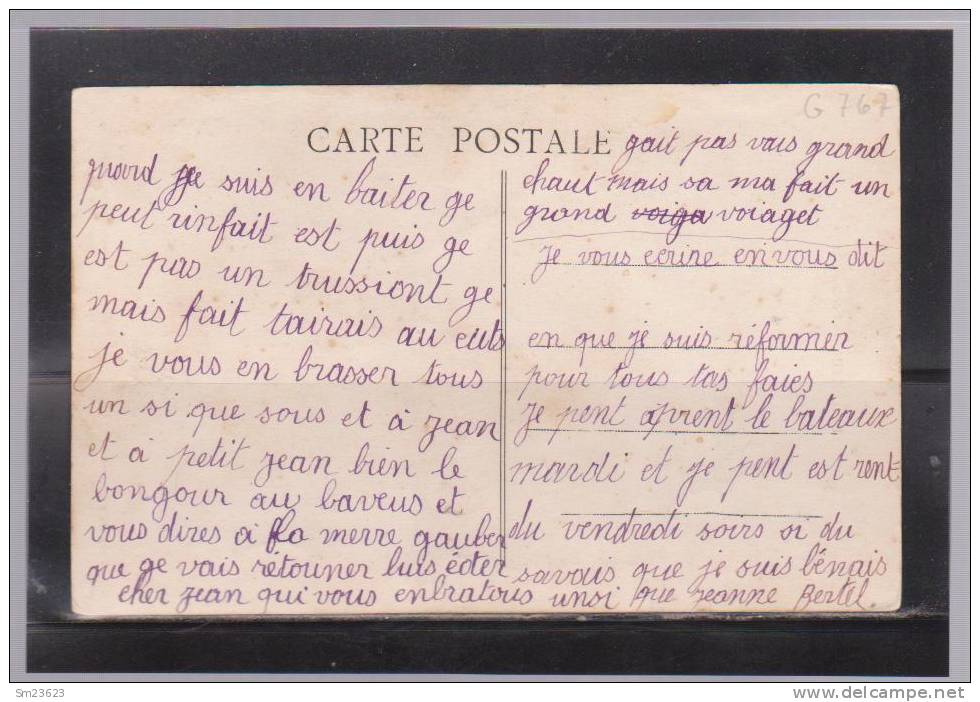 G 767
CARTE POSTALE
gait pas vais grand
chaut mais sa ma fait un
grand voiga voiaget
je vous ecrire en vous dit
en que je suis réformér
pour tous tas faies
je pent aprent le bateaux
mardi et je pent est rent-
du vendredi soirs si du
savais que je suis bénais
quard je suis en baiter ge
peut rinfait est puis ge
est pas un trussiont ge
mais fait tairais au euts
je vous en brasser tous
un si que sous et à jean
et a petit jean bien le
bongour au baveus et
vous dires a la merre gauber
que ge vais rétouner luis éder
cher jean qui vous enbratous unsi que jeanne Bertel.
Sm23623
www.delcampe.net